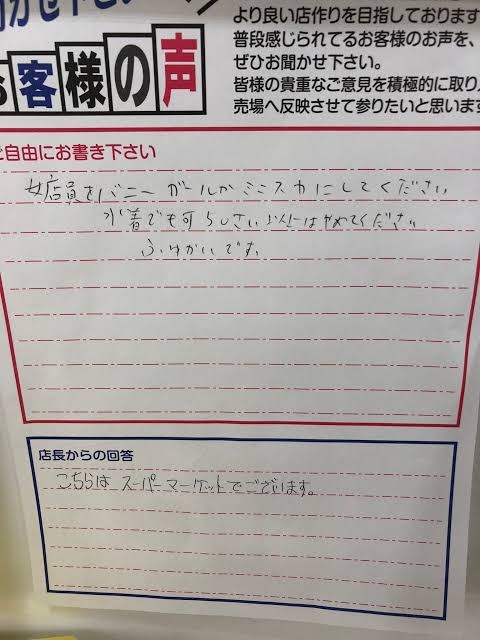 お客様の声
より良い店作りを目指しております
普段感じられてるお客様のお声を、
ぜひお聞かせ下さい。
皆様の貴重なご意見を積極的に取り入
売場へ反映させて参りたいと思います
ご自由にお書き下さい
女店員をバニーガールかミニスカにしてください
水着でも可
はやめてください
ふゆかいです。
店長からの回答
こちらはスーパーマーケットでございます。